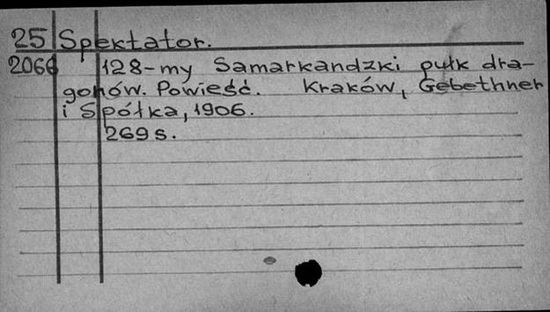 25 Spektator.
2066 128-my Samarkandzki pułk dra-
gonów. Powieść. Kraków, Gebethner
i Spółka, 1906.
269 s.